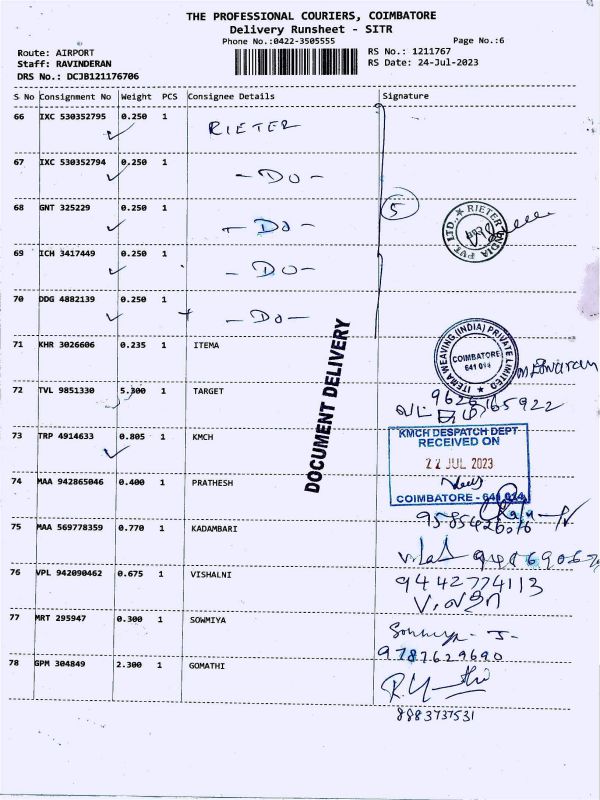 THE PROFESSIONAL COURIERS, COIMBATORE
Delivery Runsheet - SITR
Phone No.:0422-3505555
Page No.:6
Route: AIRPORT
RS No.: 1211767
Staff: RAVINDERAN
RS Date: 24-Jul-2023
DRS No.: DCJB121176706
S No Consignment No Weight PCS Consignee Details Signature
66 IXC 530352795 0.250 1 RIETER
67 IXC 530352794 0.250 1 - DO -
5
68 GNT 325229 0.250 1 - DO -
RIETER INDIA PVT. LTD.,
69 ICH 3417449 0.250 1 - DO -
70 DDG 4882139 0.250 1 - DO -
DOCUMENT DELIVERY
71 KHR 3026606 0.235 1 ITEMA
ITEMA WEAVING (INDIA) PRIVATE LIMITED
COIMBATORE
72 TVL 9851330 5.300 1 TARGET
73 TRP 4914633 0.805 1 KMCH
KMCH DESPATCH DEPT
RECEIVED ON
22 JUL 2023
COIMBATORE - 641 014
74 MAA 942865046 0.400 1 PRATHESH
75 MAA 569778359 0.770 1 KADAMBARI
76 VPL 942090462 0.675 1 VISHALNI
9442774113
77 MRT 295947 0.300 1 SOWMIYA
9787629690
78 GPM 304849 2.300 1 GOMATHI
8883737531